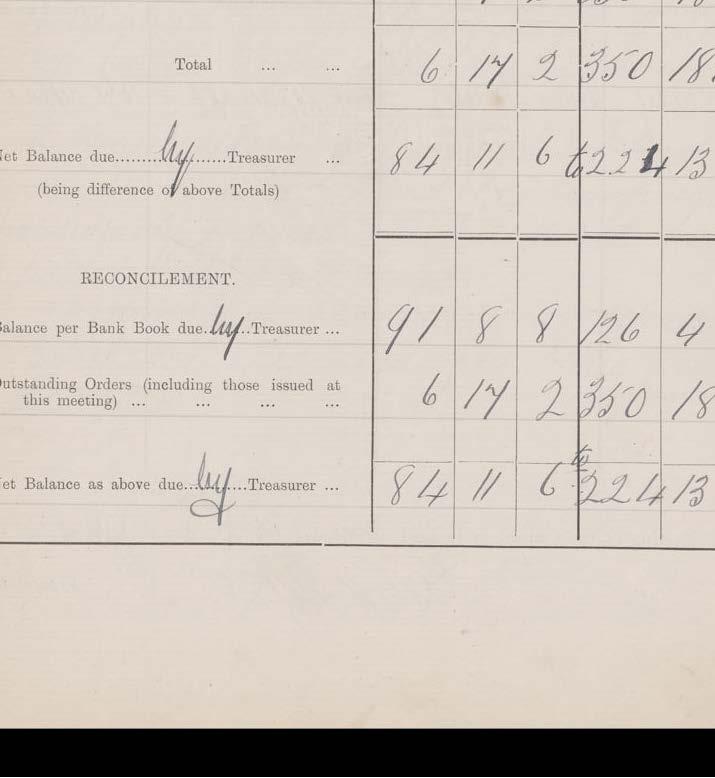 Total ... ... 6 17 2 350 18
Net Balance due.........by.......Treasurer ... 84 11 6 to 224 13
(being difference of above Totals)
RECONCILEMENT.
Balance per Bank Book due..by..Treasurer ... 91 8 8 126 4
Outstanding Orders (including those issued at
this meeting) ... ... ... ... 6 17 2 350 18
to
Net Balance as above due...by....Treasurer ... 84 11 6 224 13